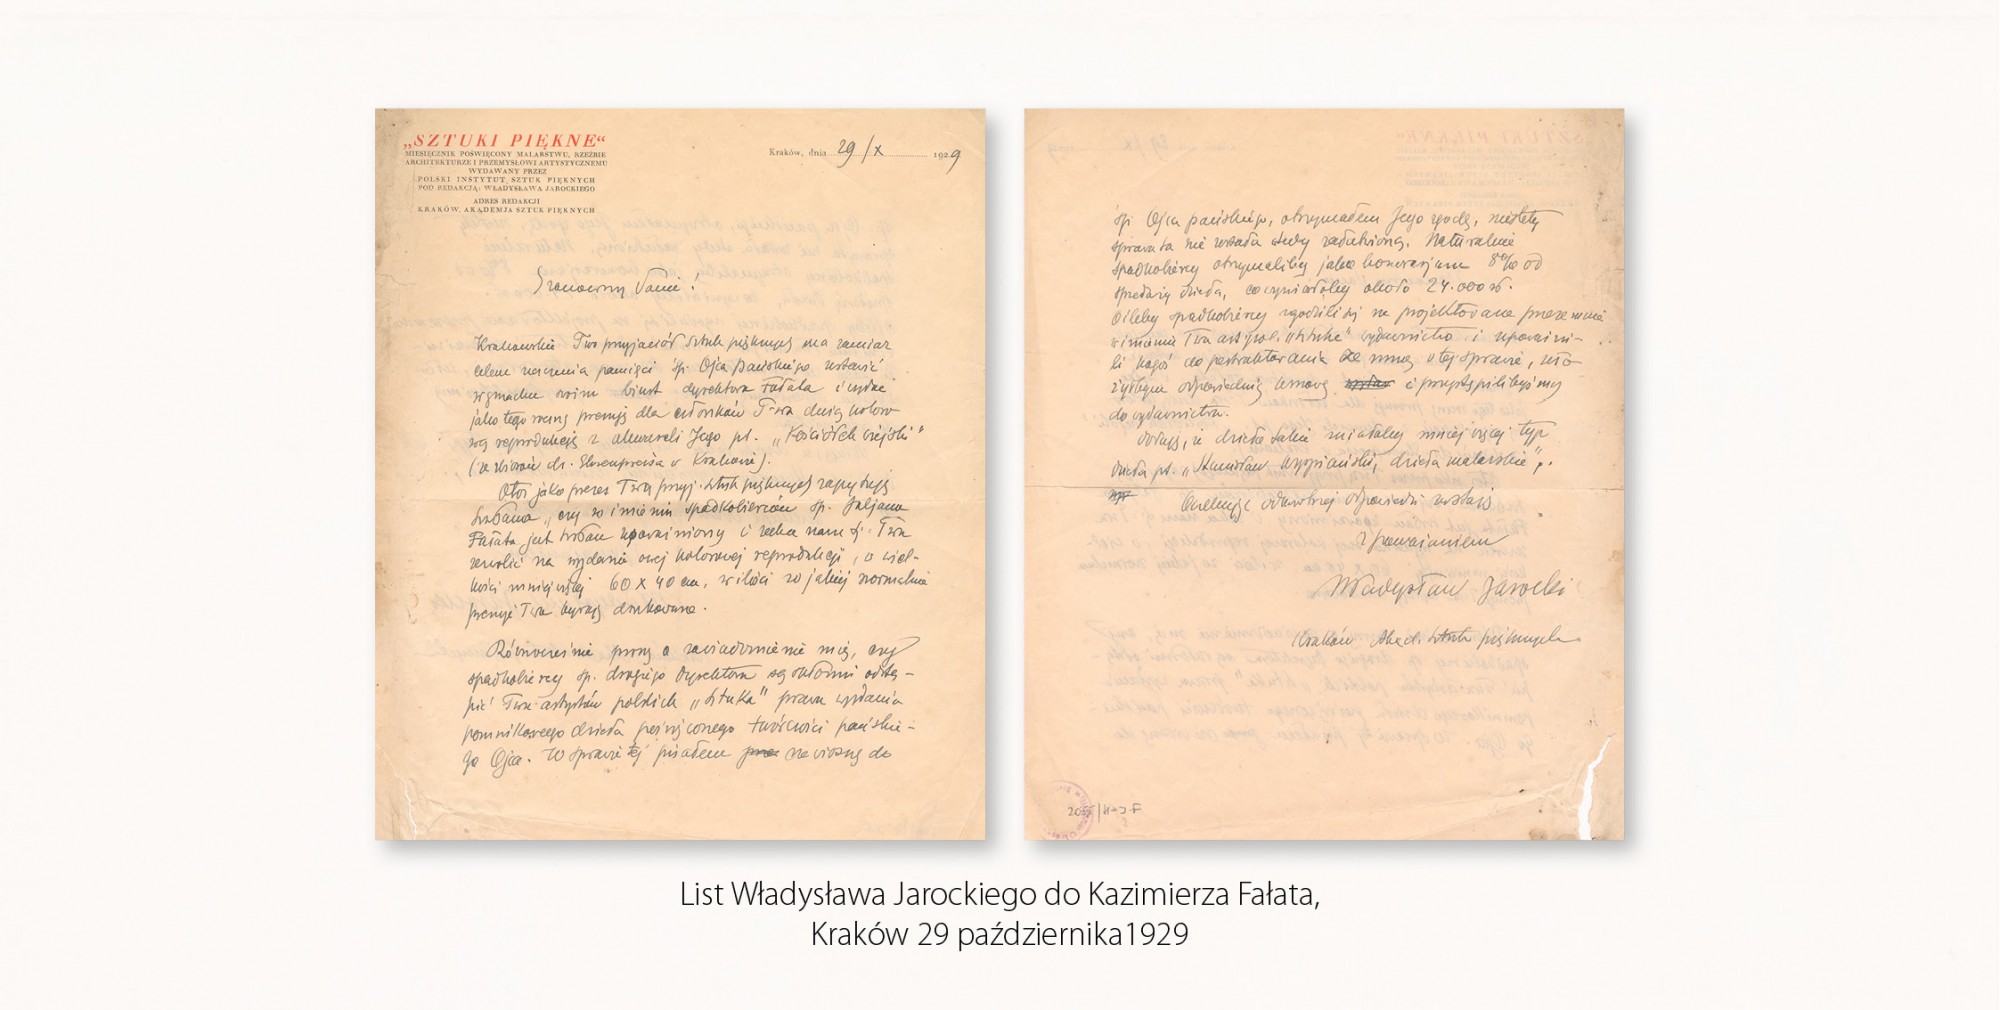 „SZTUKI PIĘKNE“
MIESIĘCZNIK POŚWIĘCONY MALARSTWU, RZEŹBIE
ARCHITEKTURZE I PRZEMYSŁOWI ARTYSTYCZNEMU
WYDAWANY PRZEZ
POLSKI INSTYTUT SZTUK PIĘKNYCH
POD REDAKCJĄ: WŁADYSŁAWA JAROCKIEGO
ADRES REDAKCJI
KRAKÓW, AKADEMJA SZTUK PIĘKNYCH
Kraków, dnia 29/X 1929
Szanowny Panie!
Krakowskie Two przyjaciół Sztuk pięknych ma zamiar
celem uczczenia pamięci śp. Ojca pańskiego wstawić
w gmachu swoim biust dyrektora Fałata i wydać
jako tegoroczną premję dla członków T-wa dużą koloro-
wą reprodukcję z akwareli Jego pt. „Kościółek wiejski"
(ze zbiorów dr. w Krakowie).
Otóż jako prezes Twa przyj. sztuk pięknych zapytuję
czy w imieniu spadkobierców śp. Juljana
Fałata jest upoważniony i zechce nam tj. Twu
zezwolić na wydanie owej kolorowej reprodukcji, o wiel-
kości mniej więcej 60 x 40 cm, w ilości w jakiej normalnie
premje Twa bywają drukowane.
Równocześnie proszę o zawiadomienie mię, czy
spadkobiercy śp. drogiego Dyrektora są skłonni odstą-
pić Twu artystów polskich „Sztuka" prawa wydania
pomnikowego dzieła poświęconego twórczości pańskie-
go Ojca. W sprawie tej pisałem na wiosnę do
śp. Ojca pańskiego, otrzymałem Jego zgodę, niestety
sprawa ta nie została wtedy załatwioną. Naturalnie
spadkobiercy otrzymaliby jako honorarjum 8% od
sprzedaży dzieła, co wyniosłoby około 24.000 zł.
O ileby spadkobiercy zgodzili się na projektowane przezemnie
w imieniu Twa art. pol. „Sztuka" wydawnictwo i upoważni-
li kogoś do pertraktowania ze mną w tej sprawie,
odpowiednią umowę i przystąpilibyśmy
do wydawnictwa.
Dodaję, iż dzieło takie miałoby mniej więcej typ
dzieła pt. „Stanisław Wyspiański, dzieła malarskie".
Oczekując odwrotnej odpowiedzi zostaję
z poważaniem
Władysław Jarocki
Kraków Akad. Sztuk pięknych
List Władysława Jarockiego do Kazimierza Fałata,
Kraków 29 października1929